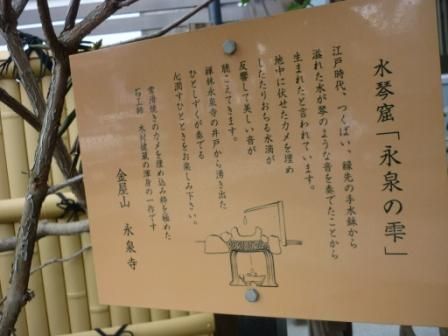 水琴窟「永泉の雫」
江戸時代、つくばい、縁先の手水鉢から
溢れた水が琴のような音を奏でたことから
生まれたと言われています。
地中に伏せたカメを埋め
したたりおちる水滴が
反響して美しい音が
聴こえてきます。
禅林永泉寺の井戸から湧き出た
ひとしずくが奏でる
心潤すひとときをお楽しみ下さい。
常滑焼きのカメを埋め込み粋を極めた
石工師 木村 渾身の一作です
金屋山 永泉寺